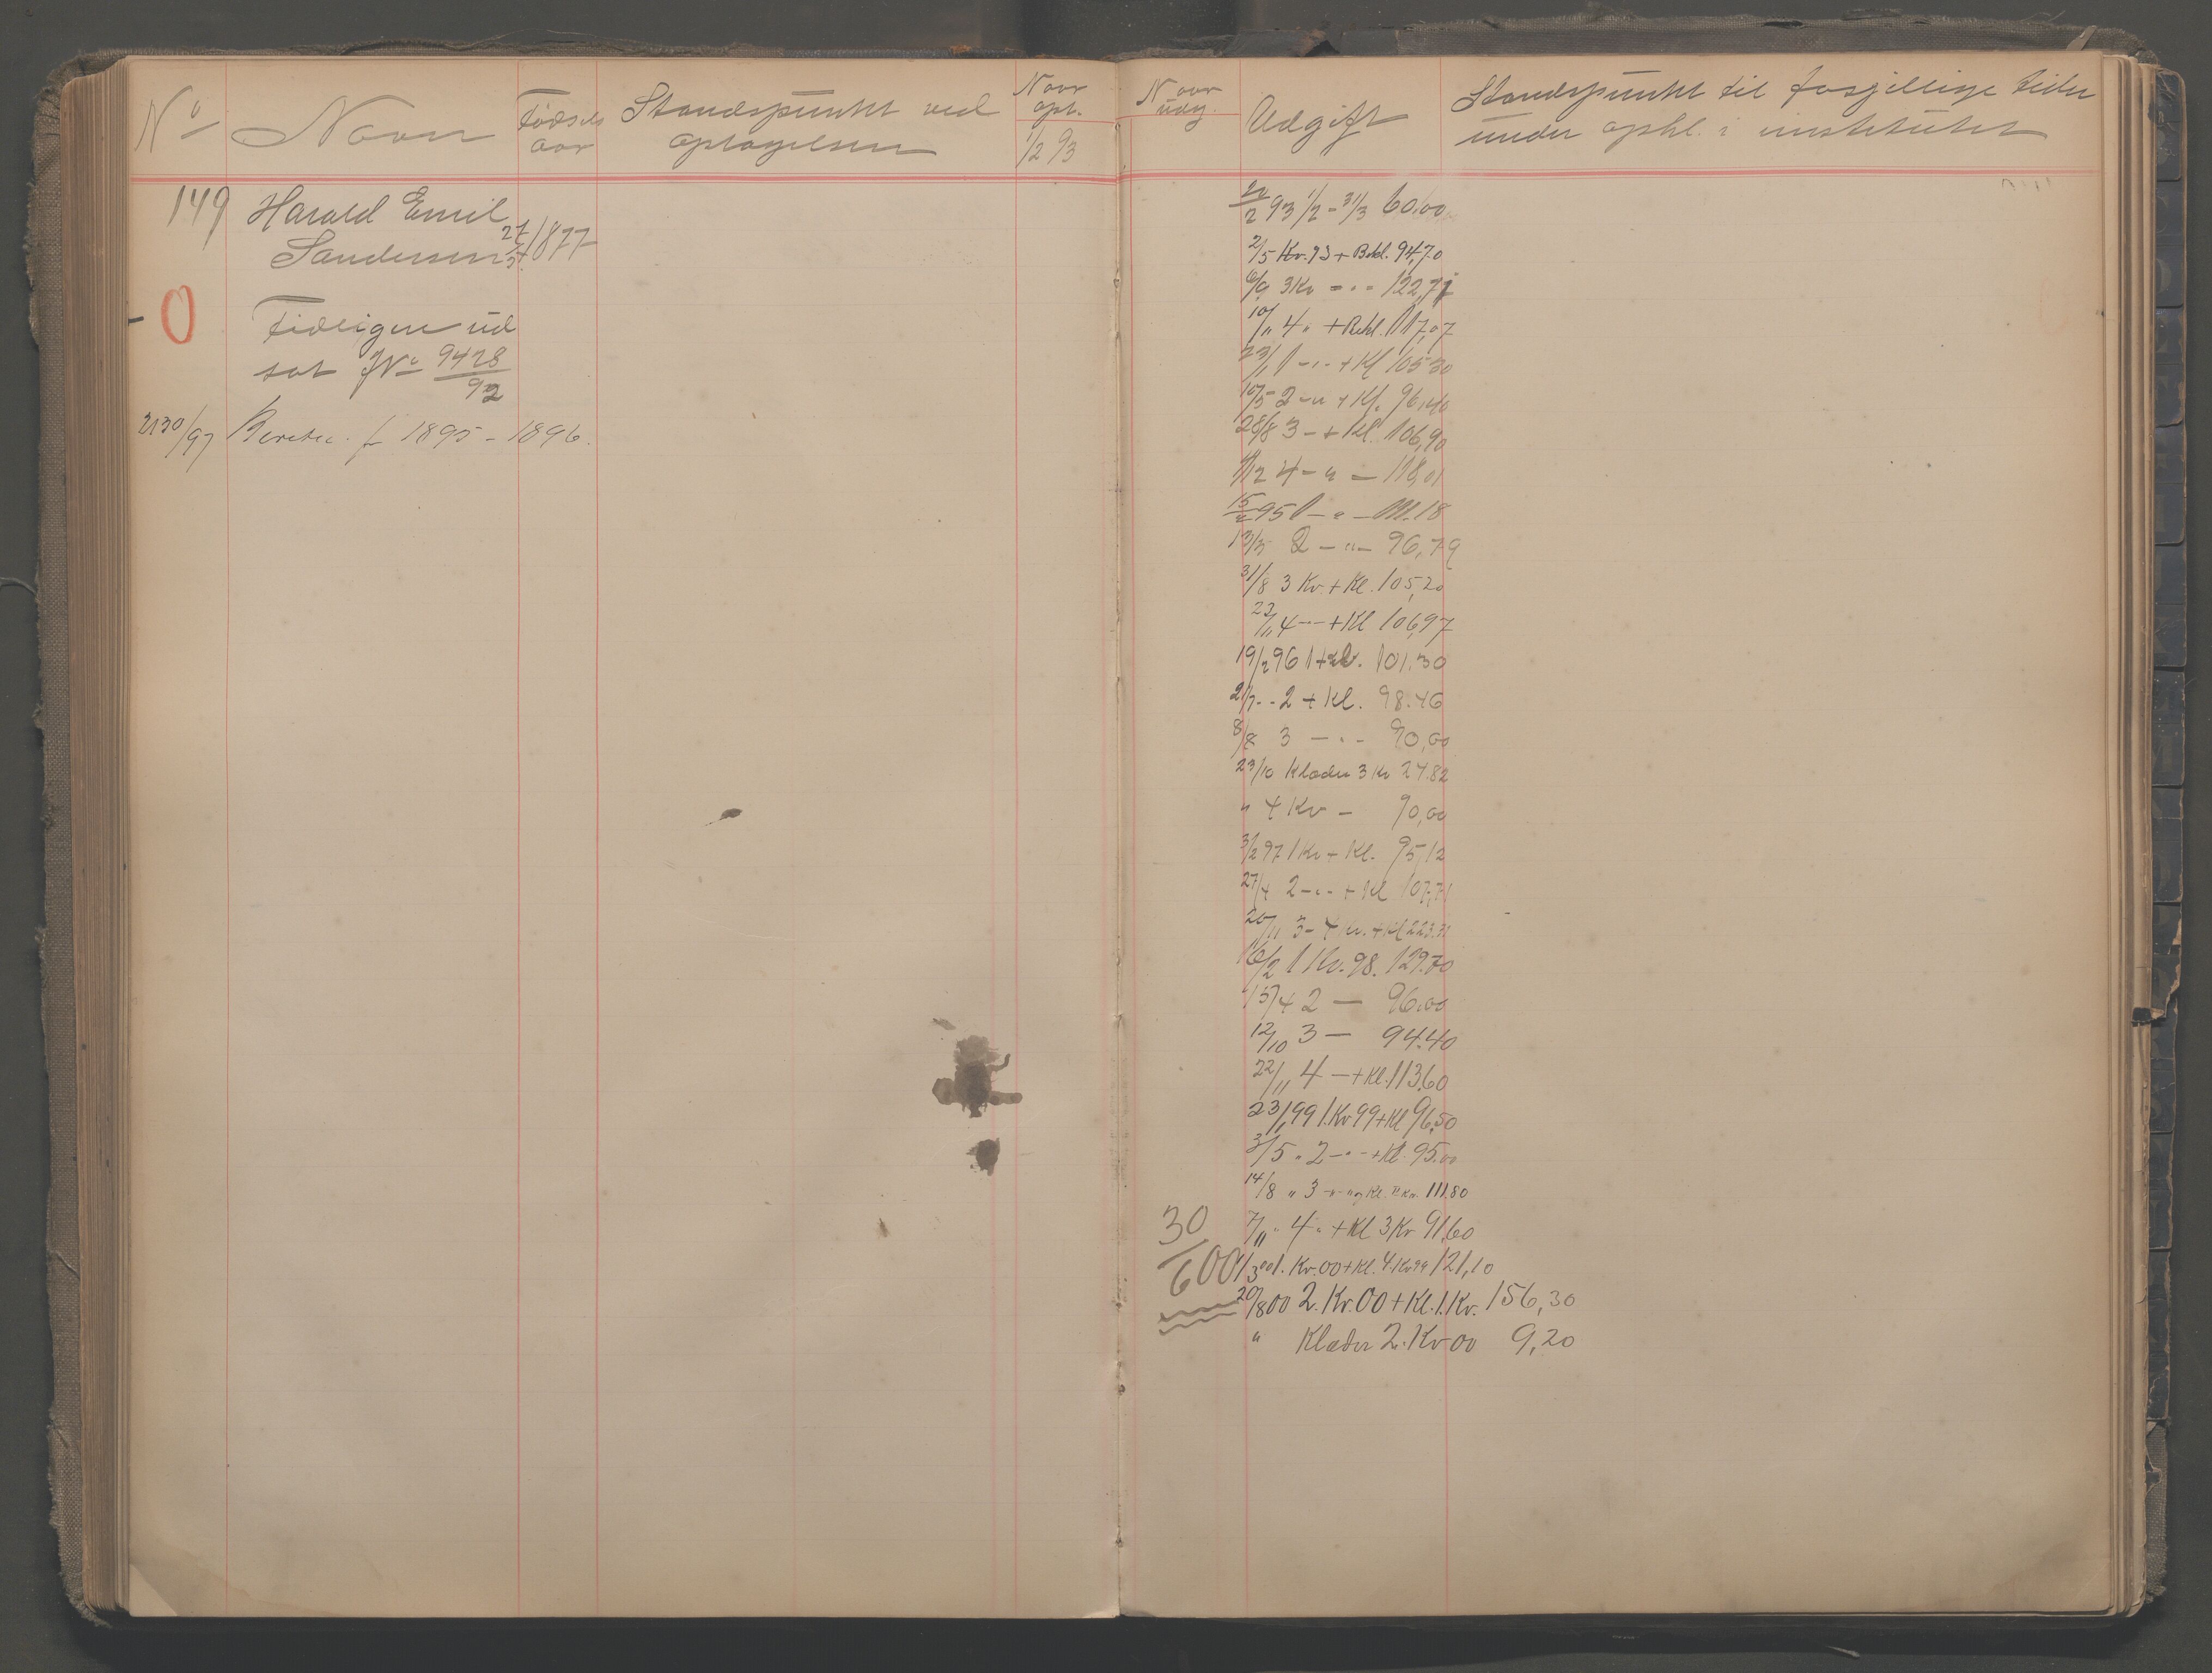 No
Navn
Fødsels
aar
Standspunkt ved
optagelsen
Naar
opt.
1/2 93
149
Harald Emil
Sandersen 27/5 1877
0
Tidligere ud
sat JNo 9428
92
2130/97 Beretn. f 1895 - 1896.
Naar
udg.
Udgift
Standspunkt til forsjellige tider
under ophl. i institutet
93 1/2 - 31/3 60,00
2/5 Kv. 93 + Bekl. 94,70
6/9 3 Kv - " - 122,71
10/11 4 " + Bekl. 117,07
23/1 1 - " - + Kl 105 30
10/5 2 - " + Kl. 96,40
28/8 3 - + Kl. 106,90
4 - " - 118,01
15/2 95 1 - " - 111.18
13/5 2 - " - 96,79
31/8 3 Kv. + Kl. 105,20
22/11 4 - " - + Kl 106,97
19/2 96 1 + Kl. 101.30
2 + Kl. 98.46
8/8 3 - " - 90,00
23/10 Klæder 3 Kv 24.82
" 4 Kv - 90,00
3/2 97 1 Kv + Kl. 95,12
27/4 2 - " - + Kl 107,71
26/11 3 - 4 Kv. + Kl 223.31
16/2 1 Kv. 98. 129.70
15/4 2 — 96.00
12/10 3 — 94.40
22/11 4 — + Kl. 113.60
23/1 99 1. Kv 99 + Kl 96,50
3/5 " 2 - " - + Kl. 95.00
14/8 " 3 - " - og Kl. 2 Kv. 111.80
30 7/11 " 4 " + Kl 3 Kv 91.60
600 1/3 00 1. Kv. 00 + Kl. 4. Kv 99 121,10
20/8 00 2. Kv. 00 + Kl. 1. Kv. 156,30
" Klæder 2. Kv 00 9,20